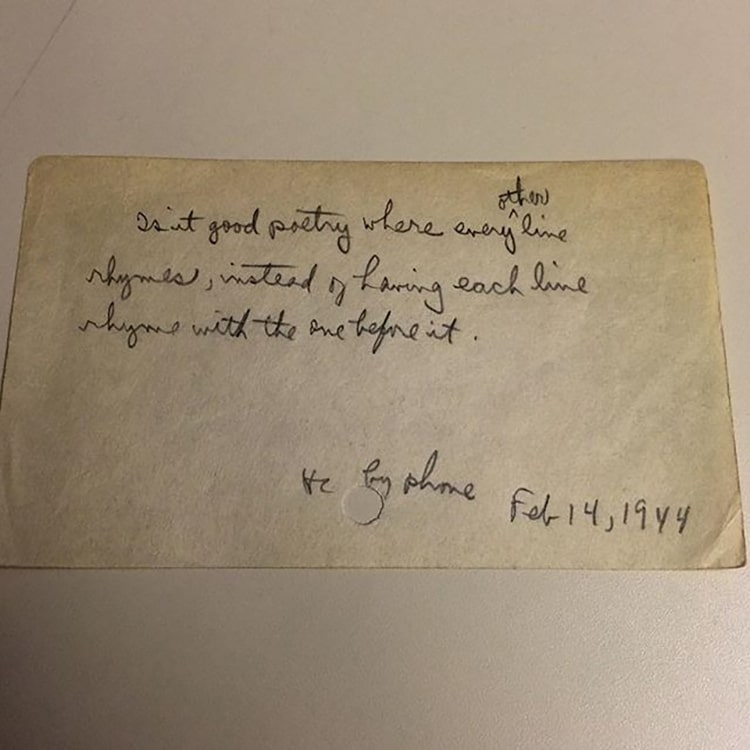 Is it good poetry where every other line
rhymes, instead of having each line
rhyme with the one before it.
Hc by phone
Feb 14, 1944